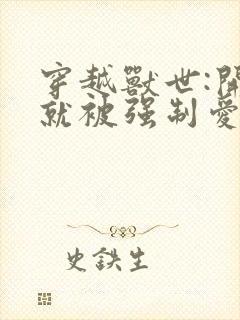 穿越獸世:開
就被强制愛
史鉄生